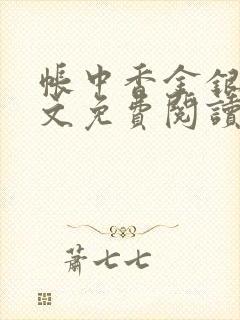 帳中香金銀
文免費閱讀
蕭七七